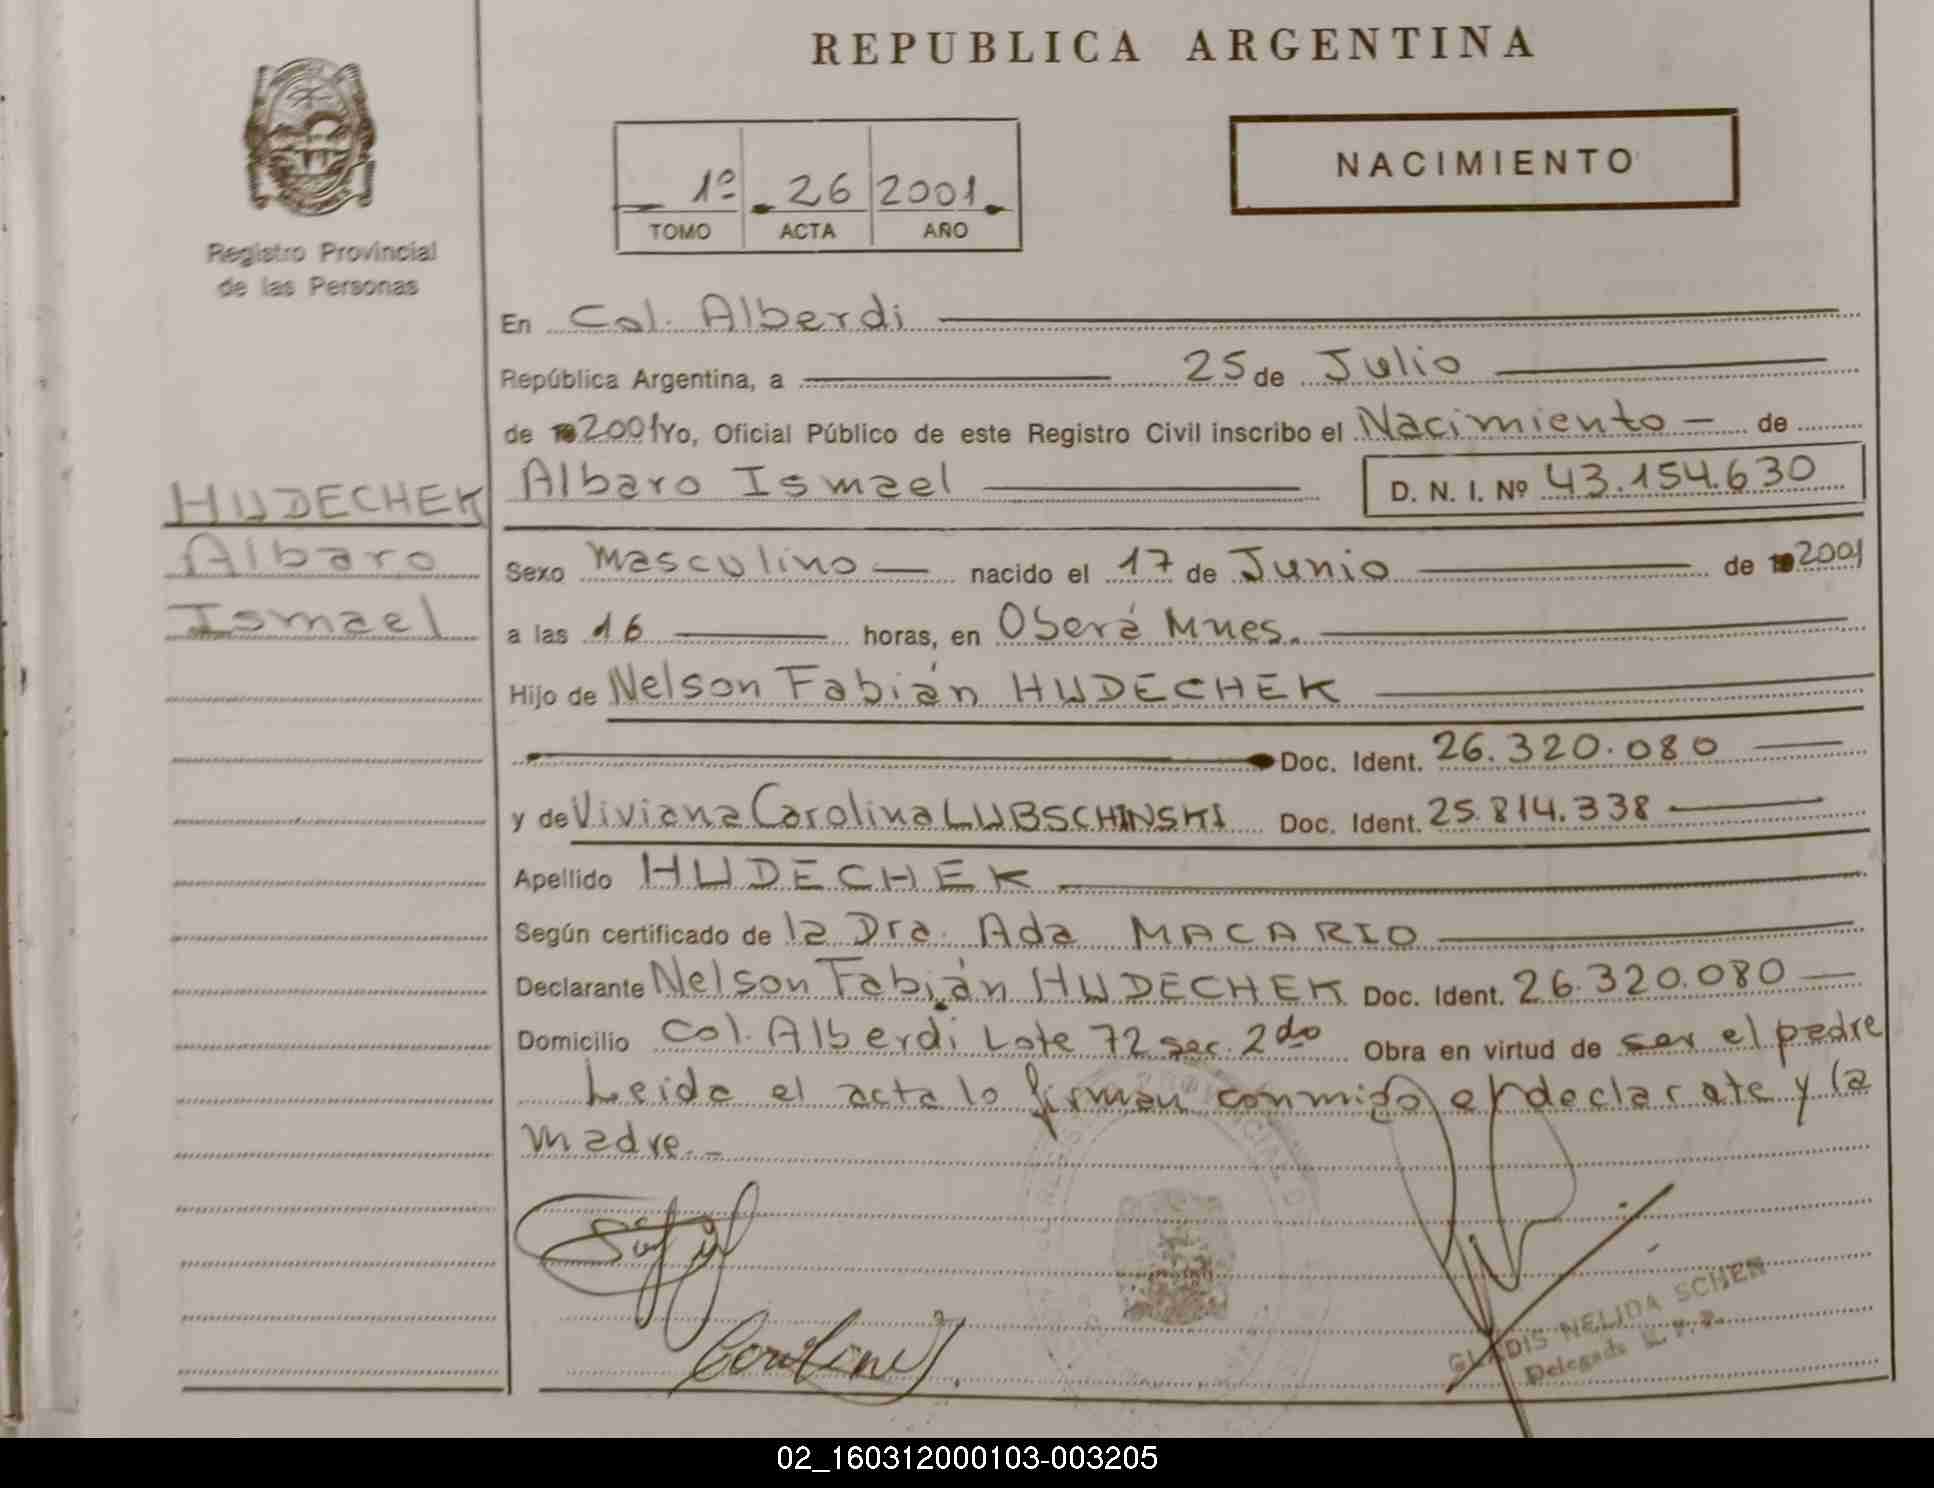 REPUBLICA ARGENTINA
NACIMIENTO
1º 26 2001
TOMO ACTA AÑO
Registro Provincial
de las Personas
En Col. Alberdi
República Argentina, a 25 de Julio
de 2001 Yo, Oficial Público de este Registro Civil inscribo el Nacimiento - de
HUDECHEK
Albaro
Ismael
Albaro Ismael D. N. I. Nº 43.154.630
Sexo masculino nacido el 17 de Junio de 2001
a las 16 horas, en Oberá Mnes.
Hijo de Nelson Fabián HUDECHEK
Doc. Ident. 26.320.080
y de Viviana Carolina LUBSCHINSKI Doc. Ident. 25.814.338
Apellido HUDECHEK
Según certificado de la Dra. Ada MACARIO
Declarante Nelson Fabián HUDECHEK Doc. Ident. 26.320.080
Domicilio Col. Alberdi Lote 72 sec. 2do Obra en virtud de ser el padre
Leida el acta lo firman conmigo el declarate y la
madre.-
GLADIS NELIDA SCHEN
Delegada R. P. P.
02_160312000103-003205